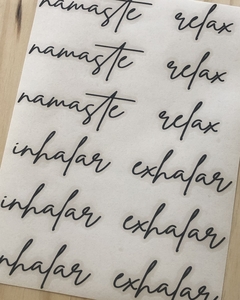 namaste relax
namaste relax
namaste relax
inhalar exhalar
inhalar exhalar
inhalar exhalar